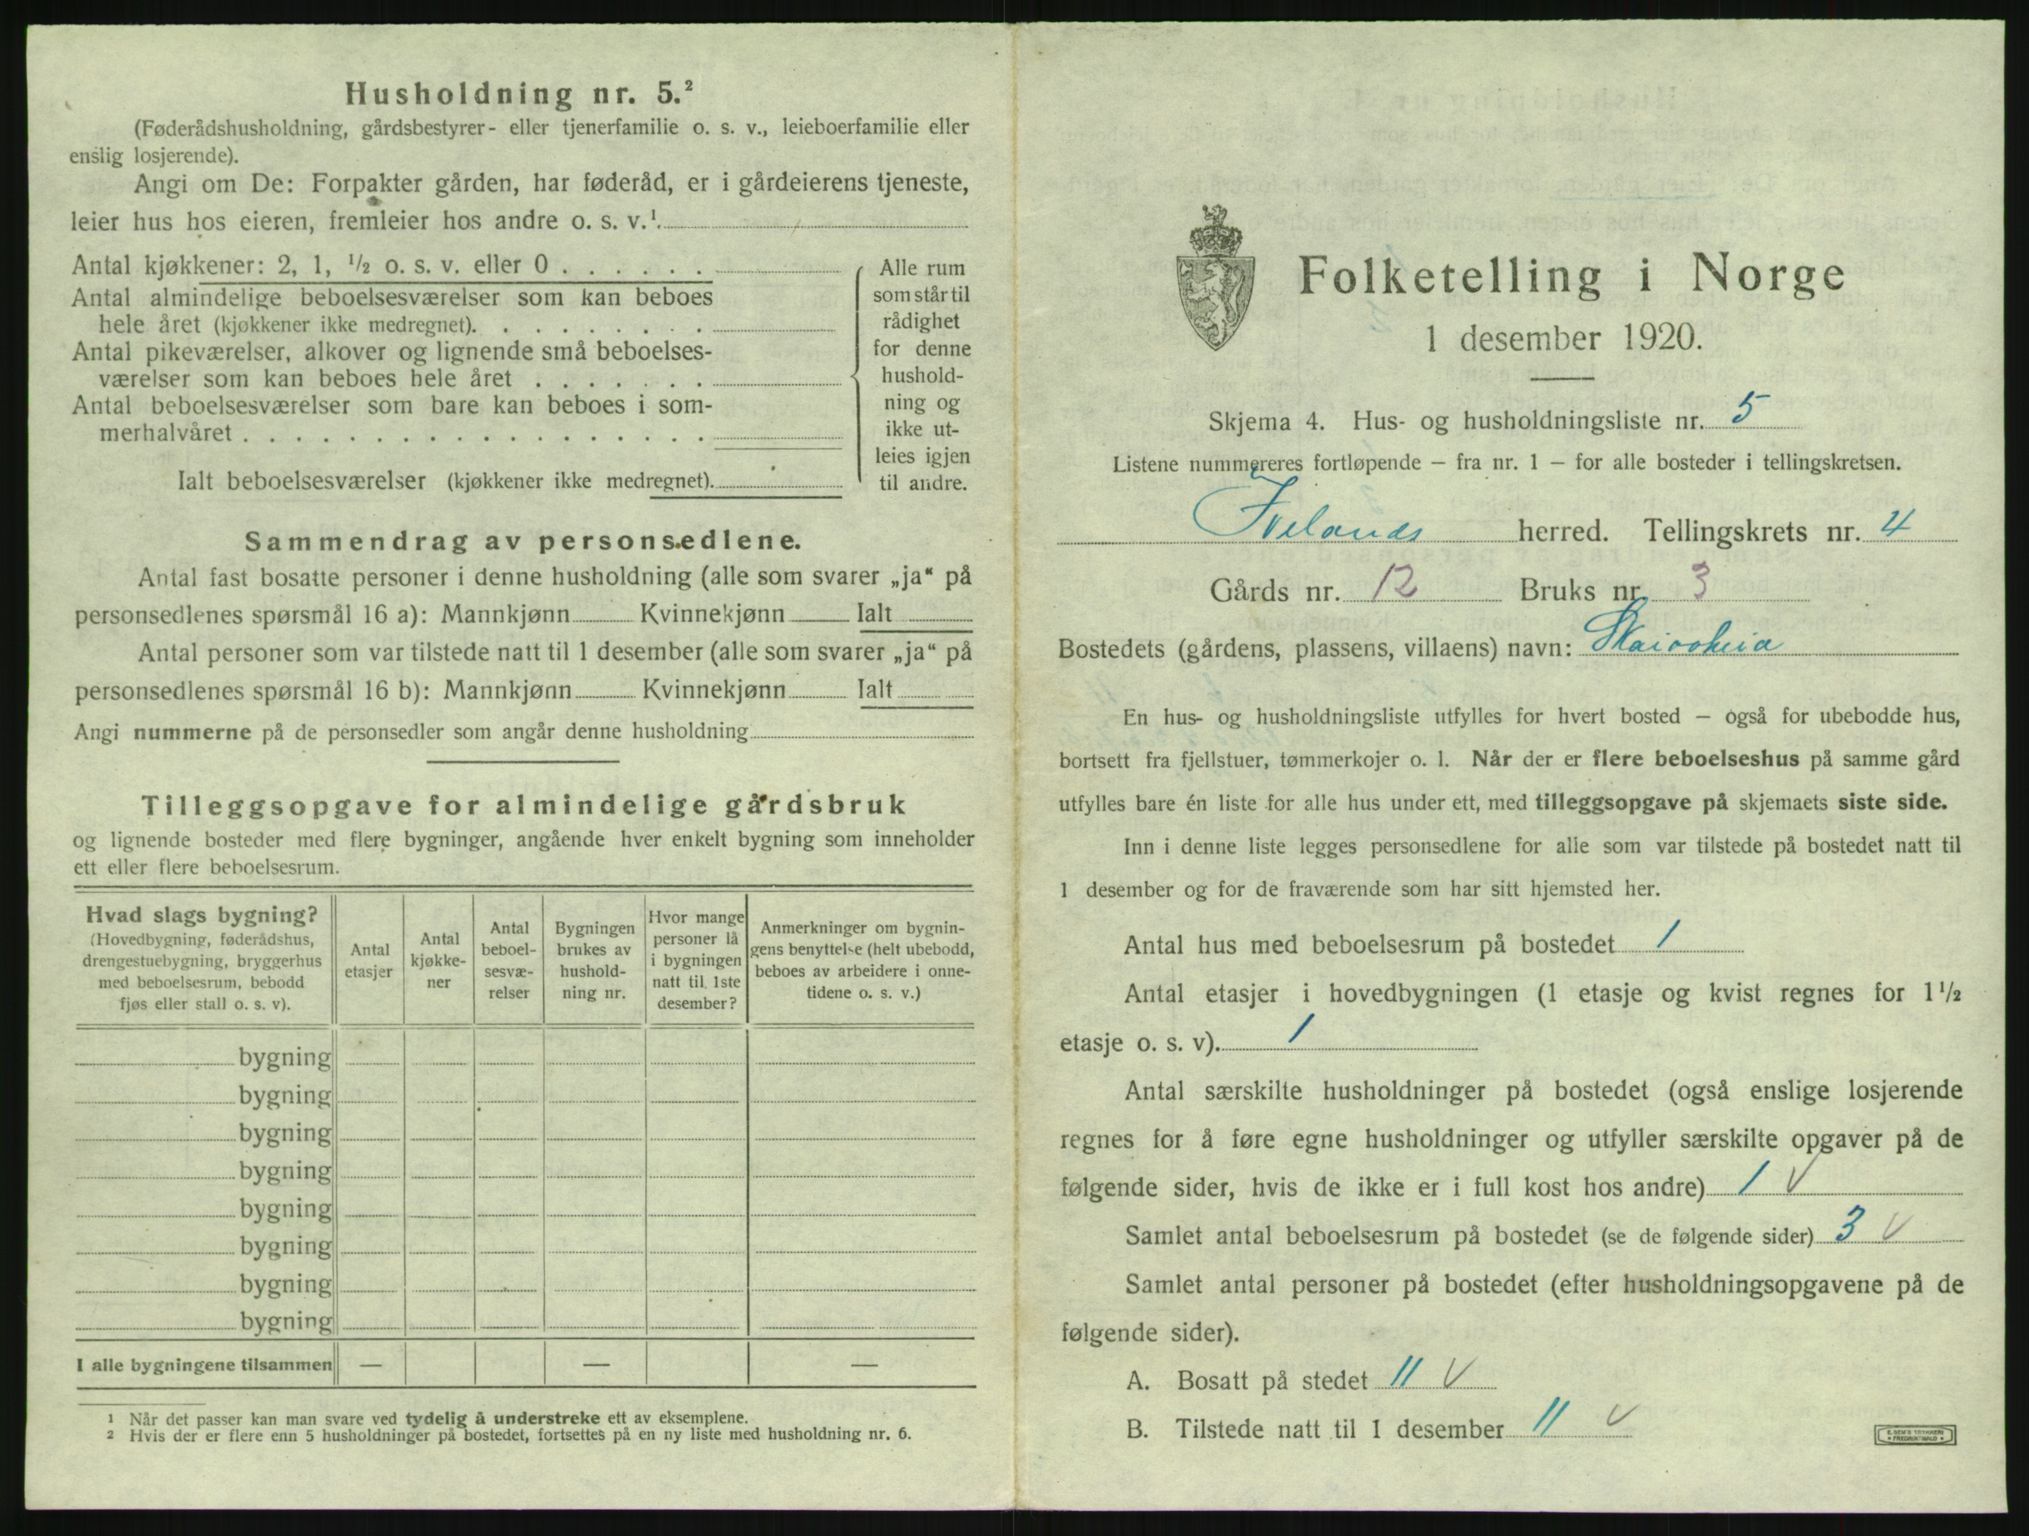 Husholdning nr. 5.²
(Føderådshusholdning, gårdsbestyrer- eller tjenerfamilie o. s. v., leieboerfamilie eller
enslig losjerende).
Angi om De: Forpakter gården, har føderåd, er i gårdeierens tjeneste,
leier hus hos eieren, fremleier hos andre o. s. v.¹
Antal kjøkkener: 2, 1, ½ o. s. v. eller 0 . . . . . .
Antal almindelige beboelsesværelser som kan beboes
hele året (kjøkkener ikke medregnet). . . . . . . . .
Antal pikeværelser, alkover og lignende små beboelses-
værelser som kan beboes hele året . . . . . . .
Antal beboelsesværelser som bare kan beboes i som-
merhalvåret . . . . . . . . . . . . . . . . . .
Ialt beboelsesværelser (kjøkkener ikke medregnet).
Alle rum
som står til
rådighet
for denne
hushold-
ning og
ikke ut-
leies igjen
til andre.
Sammendrag av personsedlene.
Antal fast bosatte personer i denne husholdning (alle som svarer „ja“ på
personsedlenes spørsmål 16 a): Mannkjønn Kvinnekjønn Ialt
Antal personer som var tilstede natt til 1 desember (alle som svarer „ja“ på
personsedlenes spørsmål 16 b): Mannkjønn Kvinnekjønn Ialt
Angi nummerne på de personsedler som angår denne husholdning
Tilleggsopgave for almindelige gårdsbruk
og lignende bosteder med flere bygninger, angående hver enkelt bygning som inneholder
ett eller flere beboelsesrum.
Hvad slags bygning?
(Hovedbygning, føderådshus,
drengestuebygning, bryggerhus
med beboelsesrum, bebodd
fjøs eller stall o. s. v).
Antal
etasjer
Antal
kjøkke-
ner
Antal
beboel-
sesvæ-
relser
Bygningen
brukes av
hushold-
ning nr.
Hvor mange
personer lå
i bygningen
natt til 1ste
desember?
Anmerkninger om bygnin-
gens benyttelse (helt ubebodd,
beboes av arbeidere i onne-
tidene o. s. v.)
bygning
bygning
bygning
bygning
bygning
bygning
bygning
bygning
I alle bygningene tilsammen — — —
1 Når det passer kan man svare ved tydelig å understreke ett av eksemplene.
2 Hvis der er flere enn 5 husholdninger på bostedet, fortsettes på en ny liste med husholdning nr. 6.
Folketelling i Norge
1 desember 1920.
Skjema 4. Hus- og husholdningsliste nr. 5
Listene nummereres fortløpende – fra nr. 1 – for alle bosteder i tellingskretsen.
Ivelands herred. Tellingskrets nr. 4
Gårds nr. 12 Bruks nr. 3
Bostedets (gårdens, plassens, villaens) navn: Skaiaaheia
En hus- og husholdningsliste utfylles for hvert bosted – også for ubebodde hus,
bortsett fra fjellstuer, tømmerkojer o. l. Når der er flere beboelseshus på samme gård
utfylles bare én liste for alle hus under ett, med tilleggsopgave på skjemaets siste side.
Inn i denne liste legges personsedlene for alle som var tilstede på bostedet natt til
1 desember og for de fraværende som har sitt hjemsted her.
Antal hus med beboelsesrum på bostedet 1
Antal etasjer i hovedbygningen (1 etasje og kvist regnes for 1½
etasje o. s. v). 1
Antal særskilte husholdninger på bostedet (også enslige losjerende
regnes for å føre egne husholdninger og utfyller særskilte opgaver på de
følgende sider, hvis de ikke er i full kost hos andre) 1 v
Samlet antal beboelsesrum på bostedet (se de følgende sider) 3 v
Samlet antal personer på bostedet (efter husholdningsopgavene på de
følgende sider).
A. Bosatt på stedet 11 v
B. Tilstede natt til 1 desember 11 v